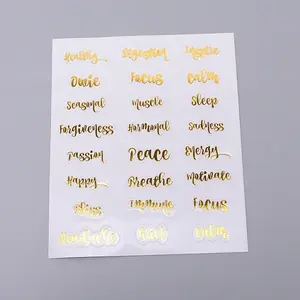 Healthy Digestion Inspire
Owie Focus Calm
Seasonal Muscle Sleep
Forgiveness Hormonal Sadness
Passion Peace Energy
Happy Breathe Motivate
Bliss Immune Focus
Calm